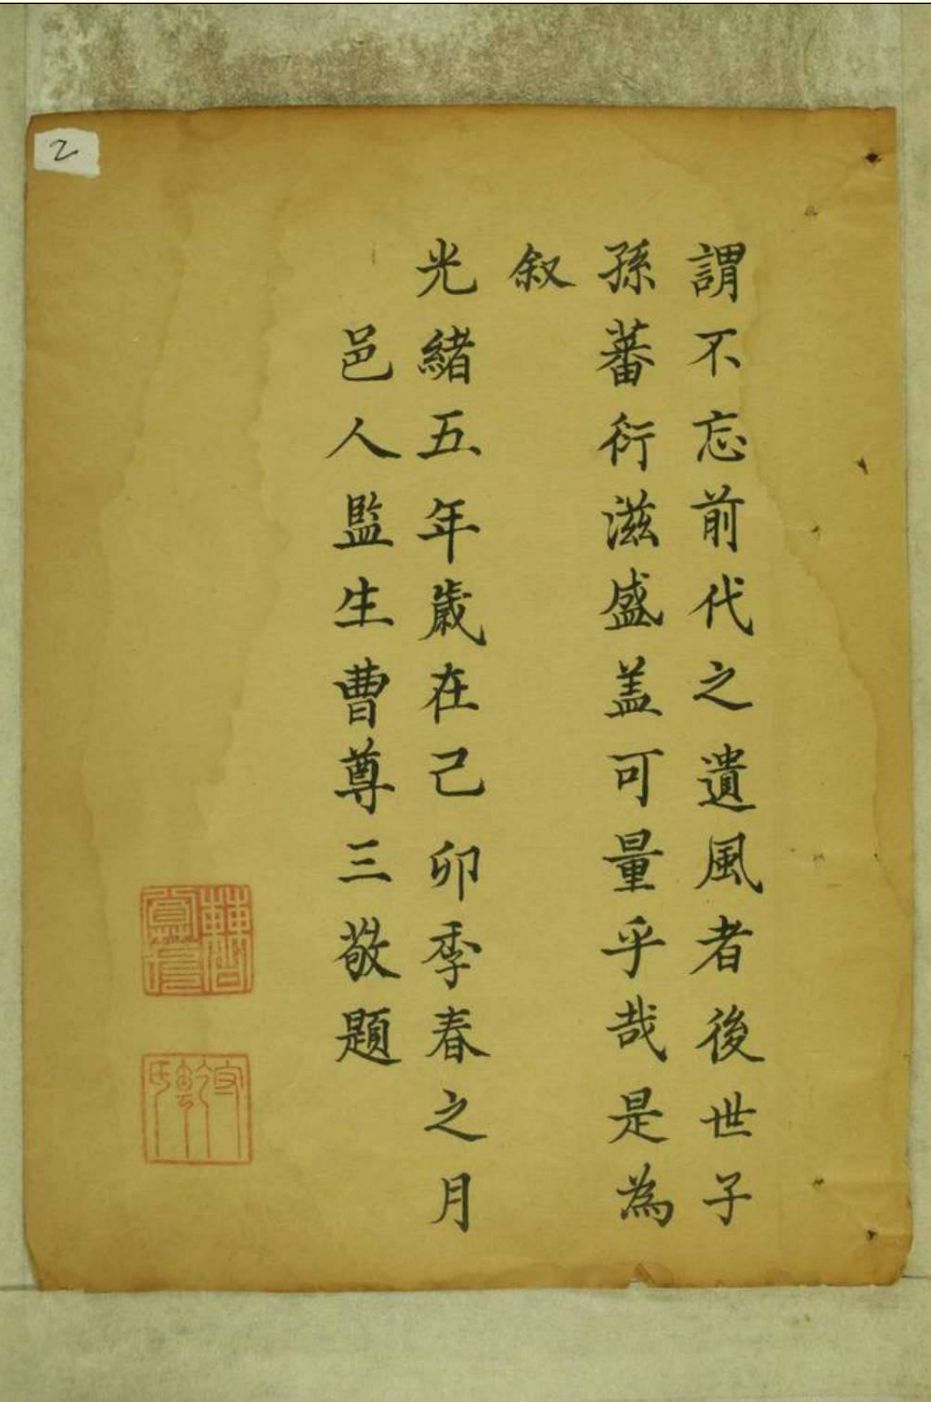 謂不忘前代之遺風者後世子
孫蕃衍滋盛盖可量乎哉是為
叙
光緒五年歲在己卯季春之月
邑人監生曹尊三敬題
2